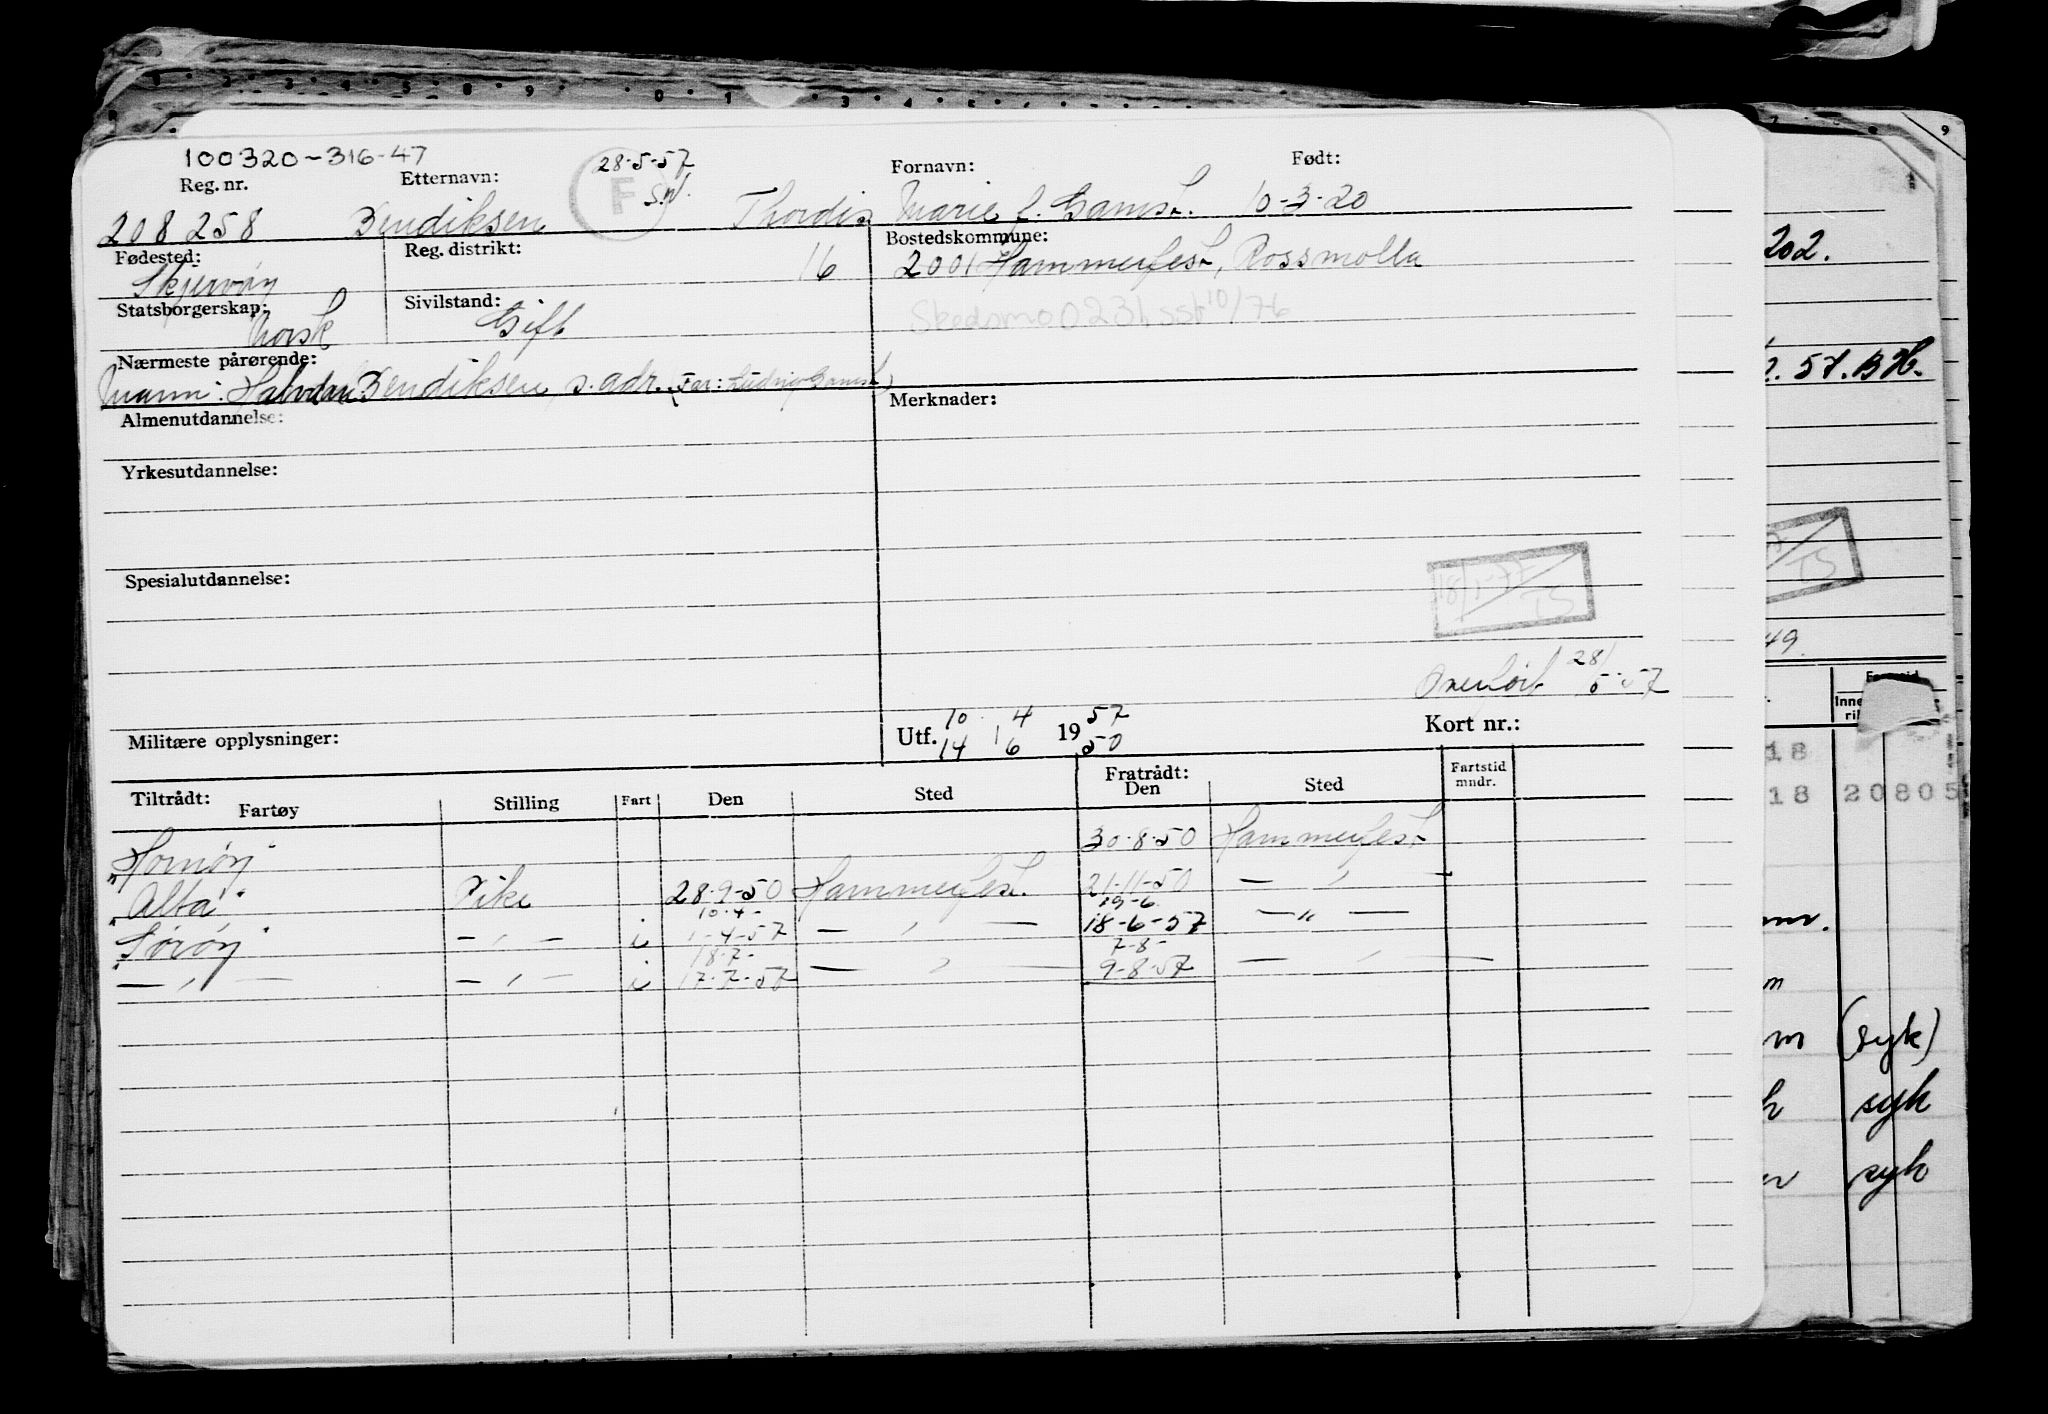 100320-316-47
Reg. nr. Etternavn: 28-5-57 Fornavn: Født:
F
208258 Bendiksen Thordis Marie f. Gamst. 10-3-20
Fødested: Reg. distrikt: Bostedskommune:
Skjervøy 16 2001 Hammerfest, Rossmolla
Statsborgerskap: Sivilstand:
Norsk Gift Skedsmo 0231 sst 10/76
Nærmeste pårørende:
Mann: Halvdan Bendiksen, s. adr. (Far: Ludvig Gamst)
Almenutdannelse: Merknader:
Yrkesutdannelse:
Spesialutdannelse:
18/1-77
TS
Overført 28/5-57
Militære opplysninger: Utf. 10 4 19 57 Kort nr.:
14 6 50
Tiltrådt: Fratrådt: Fartstid
Fartøy Stilling Fart Den Sted Den Sted mndr.
"Hornøy" 30-8-50 Hammerfest
"Alta" Pike 28-9-50 Hammerfest. 21-11-50 — " —
10-4- 19-6.
"Sørøy" — " — i 1-4-57 — " — 18-6-57 — " —
18-7- 7-8-
— " — — " — i 17-7-57 — " — 9-8-57 — " —
202.
57. BH.
TS
49.
18
18 20805
m (syk)
syk
syk